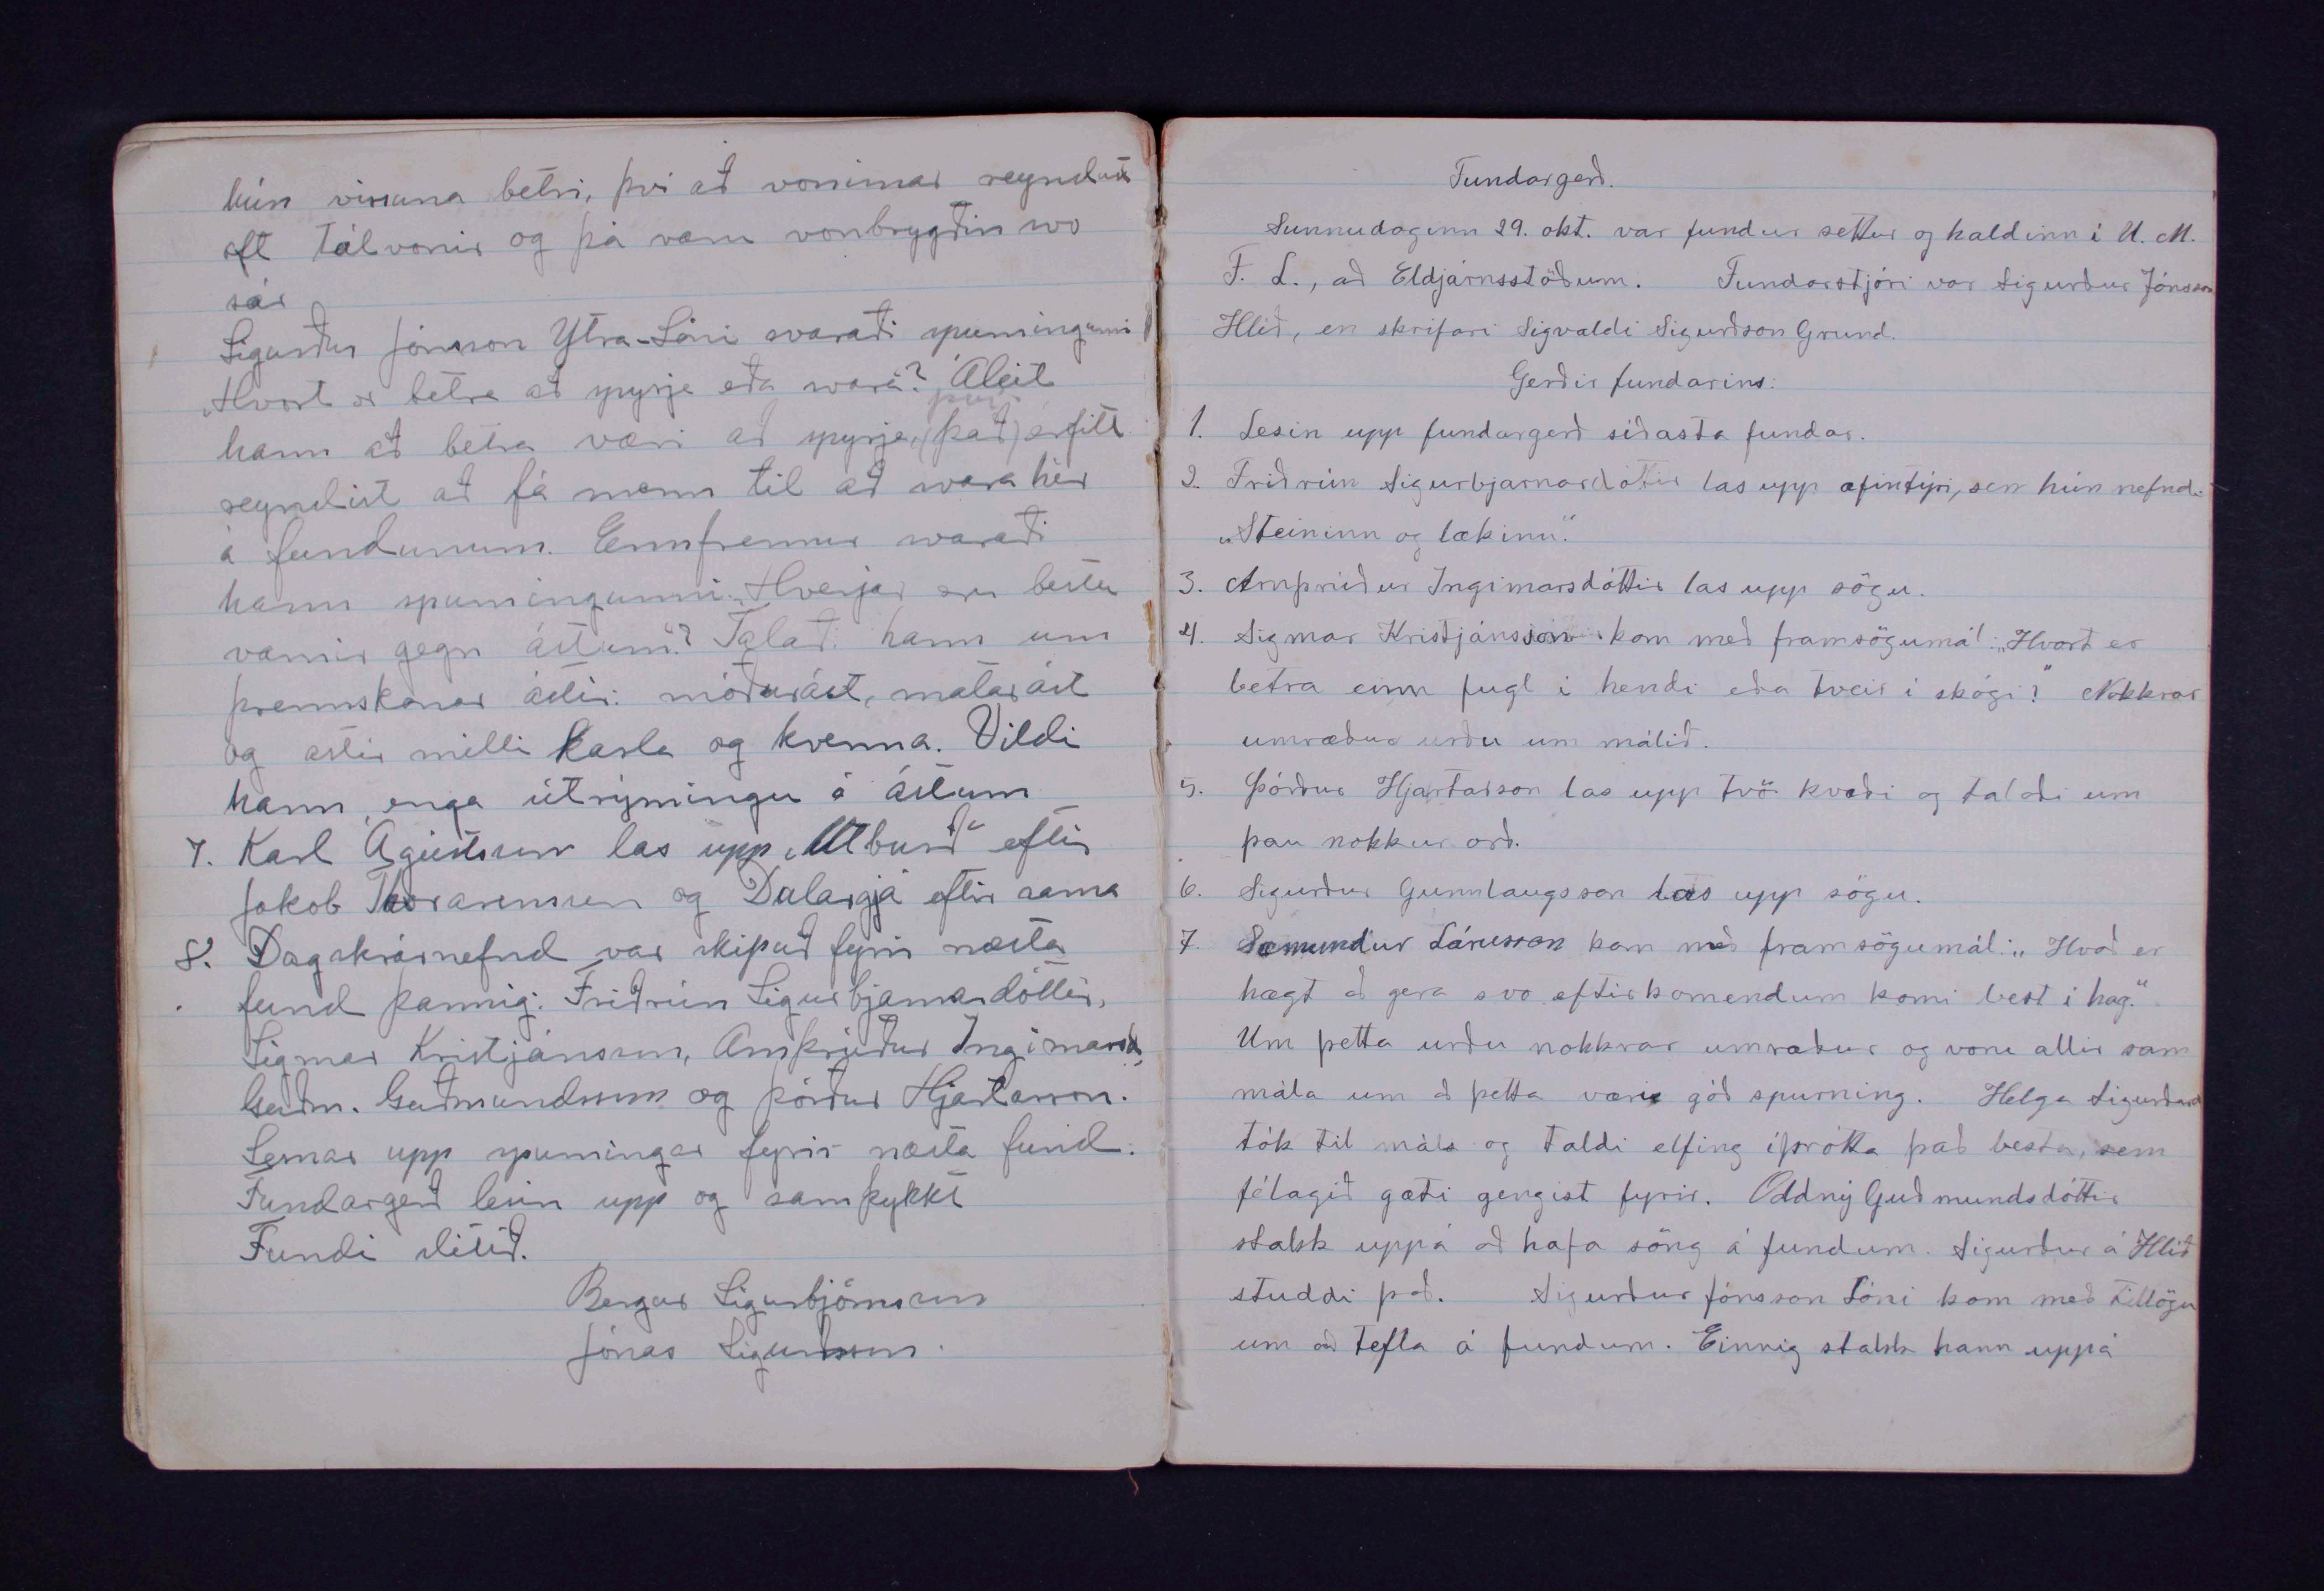 hún vissuna betri, því að vonirnar reyndust
oft tálvonir og þá væru vonbrygðin svo
sár
Sigurður Jónsson Ytra-Lóni svaraði spurningunni
„Hvort er betra að spyrja eða svara? Áleit
hann að betra væri að spyrja, (það) erfitt
reyndist að fá menn til að svara hér
á fundunum. Ennfremur svaraði
hann spurningunni: „Hverjar eru bestu
varnir gegn ástum"? Talaði hann um
þrennskonar ástir: móðurást, matarást
og astir milli karla og kvenna. Vildi
hann enga útrýmingu á ástum
7. Karl Ágústsson las upp „Útburð" eftir
Jakob Thorarensen og Dalargjá eftir sama
8. Dagskrárnefnd var skipuð fyrir næsta
fund þannig: Friðrún Sigurbjarnardóttir,
Sigmar Kristjánsson, Arnþrúður Ingimarsd.,
Guðm. Guðmundsson og Þórður Hjartarson.
Lesnar upp spurningar fyrir næsta fund.
Fundargerð lesin upp og samþykkt
Fundi slitið.
Bergur Sigurbjörnsson
Jónas Sigurðsson.
Fundargerð.
Sunnudaginn 29. okt. var fundur settur og haldinn i U. M.
F. L., að Eldjárnsstöðum. Fundarstjóri var Sigurður Jónsson
Hlíð, en skrifari Sigvaldi Sigurðson Grund.
Gerðir fundarins:
1. Lesin upp fundargerð síðasta fundar.
2. Friðrún Sigurbjarnardóttir las upp æfintýri, sem hún nefndi
„Steininn og lækinn".
3. Arnþrúður Ingimarsdóttir las upp sögu.
4. Sigmar Kristjánsson kom með framsögumál: „Hvort er
betra einn fugl i hendi eða tveir i skógi?" Nokkrar
umræður urðu um málið.
5. Þórður Hjartarson las upp tvö kvæði og talaði um
þau nokkur orð.
6. Sigurður Gunnlaugsson las upp sögu.
7. Sæmundur Lárusson kom með framsögumál: „Hvað er
hægt að gera svo eftirkomendum komi best i hag."
Um þetta urðu nokkrar umræður og voru allir sam
mála um að þetta væri góð spurning. Helga Sigurðard
tók til máls og taldi elfing íþrótta það besta, sem
félagið gæti gengist fyrir. Oddný Guðmundsdóttir
stakk uppá að hafa söng á fundum. Sigurður á Hlíð
studdi það. Sigurður Jónsson Lóni kom með tillögu
um að tefla á fundum. Einnig stakk hann uppá